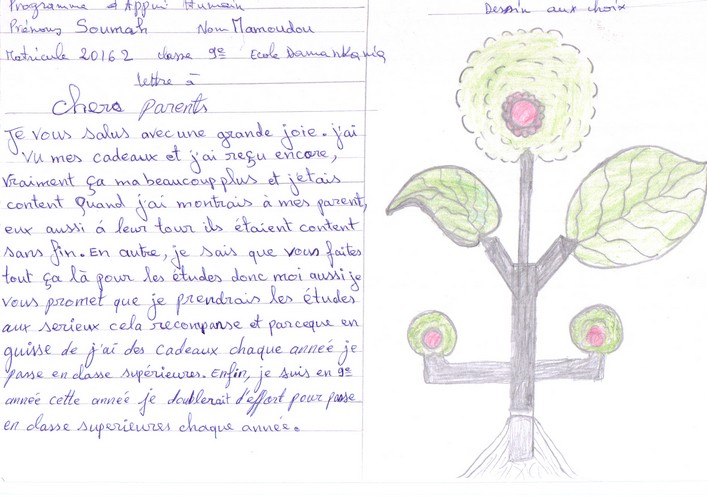 Programme d'Appui Humain
Prénons Soumah Nom Mamoudou
Matricule 20162 classe 9e Ecole Damankania
lettre à
chers parents
Je vous salus avec une grande joie. j'ai
vu mes cadeaux et j'ai reçu encore,
vraiment ça ma beaucoup plus et j'etais
content quand j'ai montrais à mes parent,
eux aussi à leur tour ils étaient content
sans fin. En autre, je sais que vous faites
tout ça là pour les études donc moi aussi je
vous promet que je prendrais les études
aux serieux cela recompanse et parceque en
guisse de j'ai des cadeaux chaque année je
passe en classe supérieures. Enfin, je suis en 9e
année cette année je doublerait d'effort pour passe
en classe superieures chaque année.
Dessin aux choix